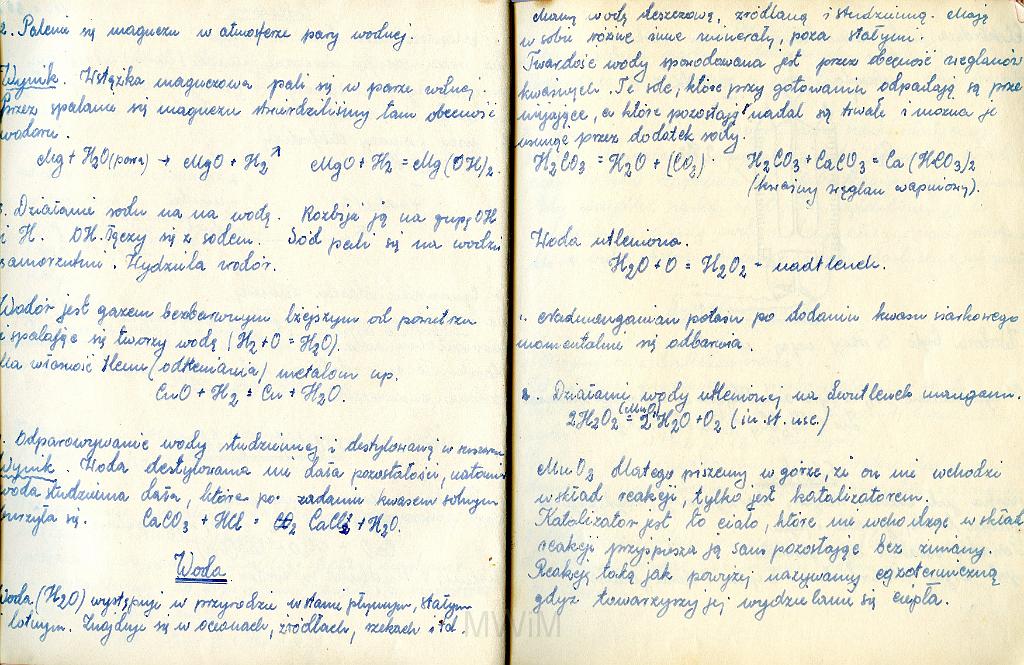 2. Palenie się magnezu w atmosferze pary wodnej.
Wynik. Wstążka magnezowa pali się w parze wodnej.
Przez spalanie się magnezu stwierdziliśmy tam obecność
wodoru.
Mg + H2O (para) → MgO + H2↑ MgO + H2 = Mg(OH)2.
. Działanie sodu na na wodę. Rozbija ją na grupę OH
i H. OH łączy się z sodem. Sód pali się na wodzie
samorzutnie. Wydziela wodór.
Wodór jest gazem bezbarwnym lżejszym od powietrza
i spalając się tworzy wodę (H2 + O = H2O).
Ma własność tlenu (odtleniania) metalom np.
CuO + H2 = Cu + H2O.
. Odparowywanie wody studziennej i destylowanej w
Wynik. Woda destylowana nie dała pozostałości, natomiast
woda studzienna dała, która po zadaniu kwasem solnym
burzyła się. CaCO3 + HCl = CO2 CaCl2 + H2O.
Woda
Woda (H2O) występuje w przyrodzie w stanie płynnym, stałym
lotnym. Znajduje się w oceanach, źródłach, rzekach itd.
Mamy wodę deszczową, źródlaną i studzienną. Mają
w sobie różne inne minerały, poza stałymi.
Twardość wody spowodowana jest przez obecność węglanów
kwaśnych. Te sole, które przy gotowaniu odpadają są prze
mijające, a które pozostają nadal są trwałe i można je
usunąć przez dodatek sody.
H2CO3 = H2O + (CO2). H2CO3 + CaCO3 = Ca(HCO3)2
(kwaśny węglan wapniowy).
Woda utleniona.
H2O + O = H2O2 - nadtlenek.
. Nadmanganian potasu po dodaniu kwasu siarkowego
momentalnie się odbarwia.
2. Działanie wody utlenionej na dwutlenek manganu.
2H2O2 (MnO2) = 2H2O + O2 (in. st. nsc.)
MnO2 dlatego piszemy w górze, że on nie wchodzi
w skład reakcji, tylko jest katalizatorem.
Katalizator jest to ciało, które nie wchodząc w skład
reakcji przyspiesza ją sam pozostając bez zmiany.
Reakcję taką jak powyżej nazywamy egzotermiczną
gdyż towarzyszy jej wydzielanie się ciepła.
MWiM